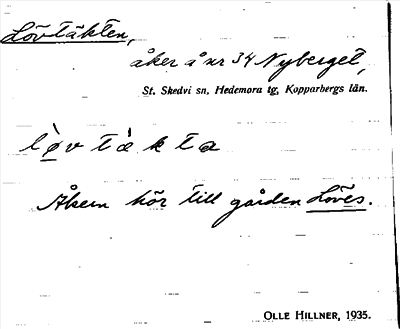 Lövtäkten,
åker å nr 34 Nyberget,
St. Skedvi sn, Hedemora tg, Kopparbergs län.
lø̀vtæ̀kta
Åkern hör till gården Löves.
OLLE HILLNER, 1935.